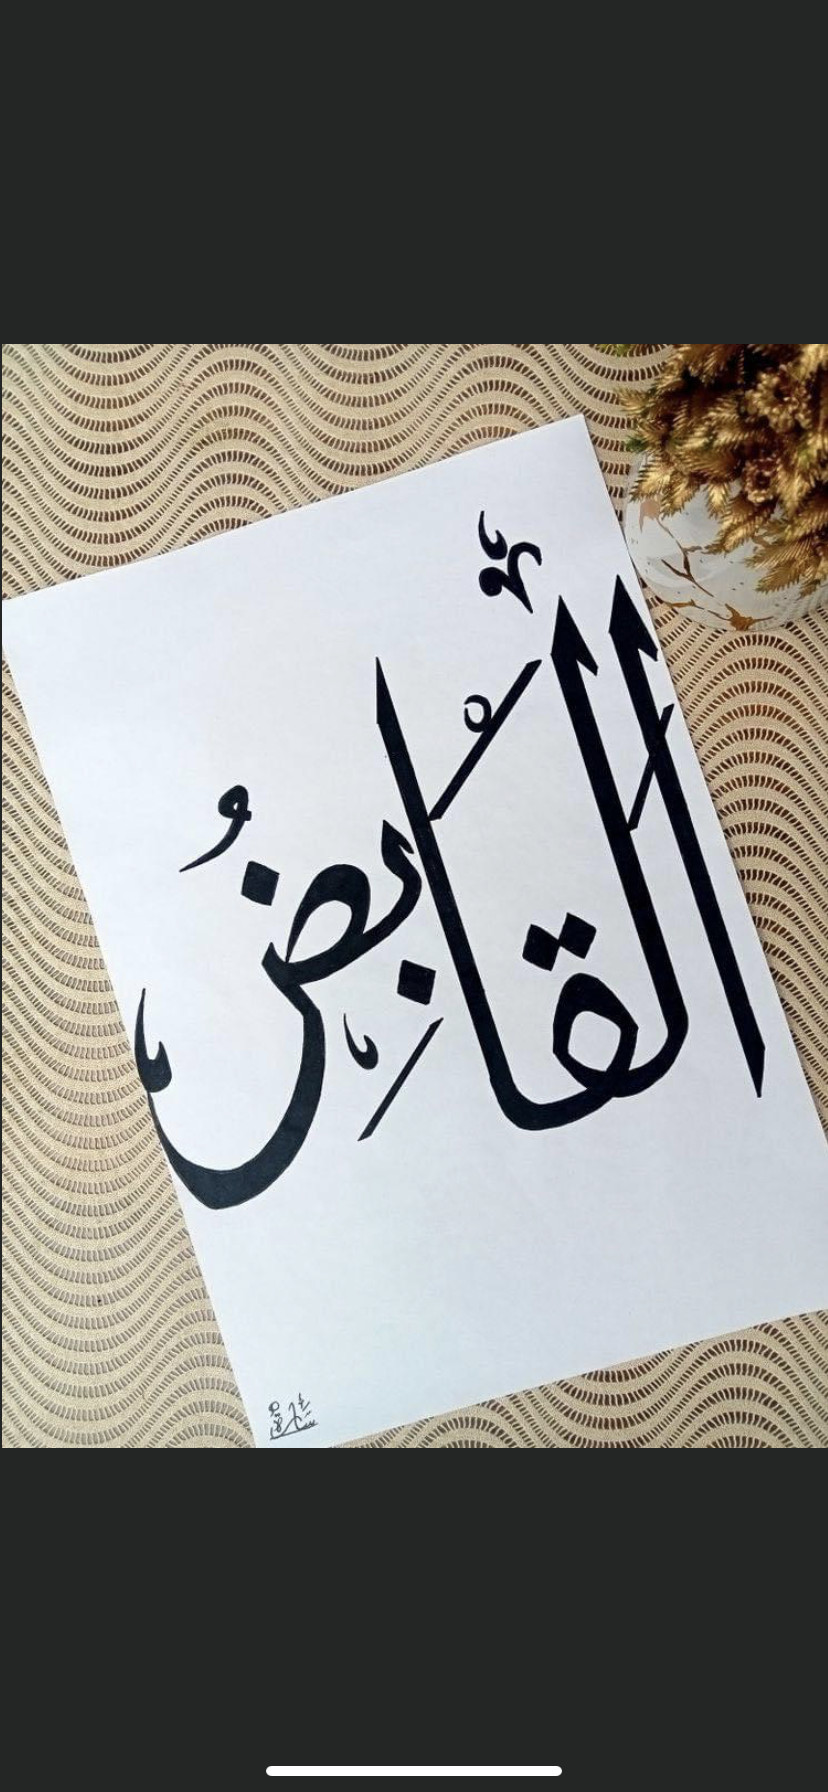 القَابِضُ